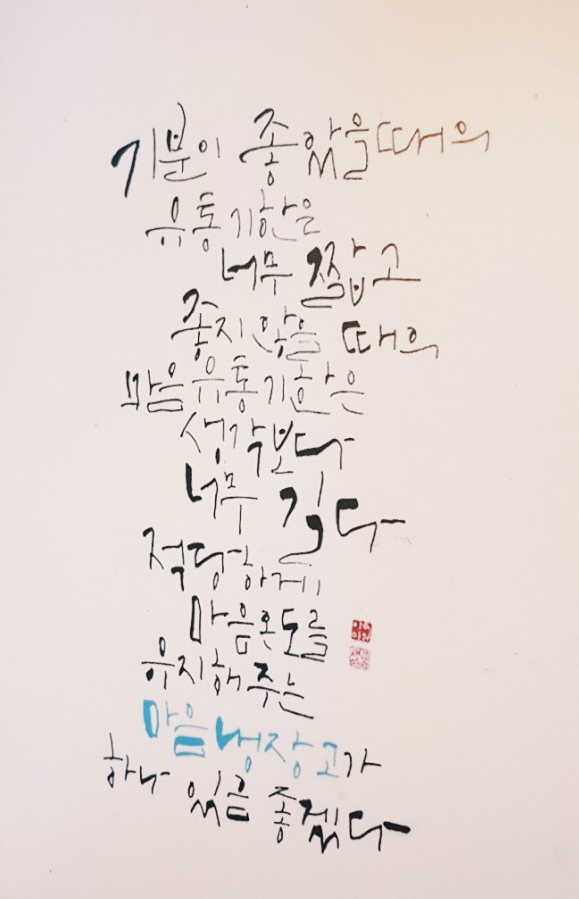 기분이 좋았을때의
유통기한은
너무 짧고
좋지않을 때의
마음유통기한은
생각보다
너무 길다
적당하게
마음온도를
유지해주는
마음냉장고가
하나 있음 좋겠다